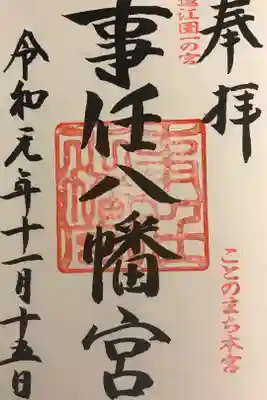 奉拝
遠江國一の宮
ことのまち本宮
事任八幡宮
令和元年十一月十五日